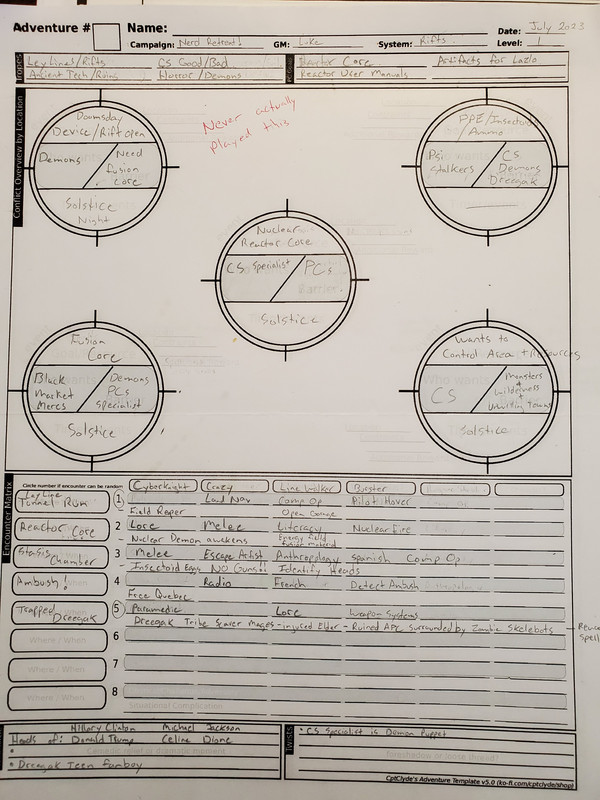 Adventure # Name: Date: July 2023
Campaign: Nerd Retreat! GM: Luke System: Rifts Level: 1
Tropes
Ley Lines/Rifts CS Good/Bad Reactor Core Artifacts for Lazlo
Ancient Tech/Ruins Horror/Demons Reactor User Manuals
Conflict Overview by Location
Never actually
played this
Doomsday
Device/Rift open
Demons
Need
fusion
core
Solstice
Night
PPE/Insectoid
Ammo
Psi
Stalkers
CS
Demons
Dreegak
Nuclear
Reactor Core
CS Specialist PCs
Solstice
Fusion
Core
Black
Market
Mercs
Demons
PCs
Specialist
Solstice
Wants to
Control Area + Resources
CS
Monsters
+
Wilderness
+
Unwilling Towns
Solstice
Encounter Matrix
Circle number if encounter can be random
Cyberknight Crazy Line Walker Burster
Ley Line
Tunnel Run
1 Land Nav Comp Op Pilot Hover
Field Reaper
Reactor Core
2 Lore Melee Literacy Nuclear fire
Nuclear Demon awakens Energy field
Stasis
Chamber
3 Melee Escape Artist Anthropology Spanish Comp Op
- Insectoid Eggs NO Guns!! Identify Heads
Ambush!
4 Radio French Detect Ambush
Free Quebec
Trapped
Dreegak
5 Paramedic Lore Weapon Systems
Dreegak Tribe Searer Mages - injured Elder - Ruined APC surrounded by Zombie Skelebots
Spell
Where / When
6
Where / When
7
Where / When
8
Situational Complication
Hillory Clinton Michael Jackson
Heads of: Donald Trump Celine Dione
• Dreegak Teen fanboy
Twists
• CS Specialist is Demon Puppet
CptClyde's Adventure Template v5.0 (ko-fi.com/cptclyde/shop)